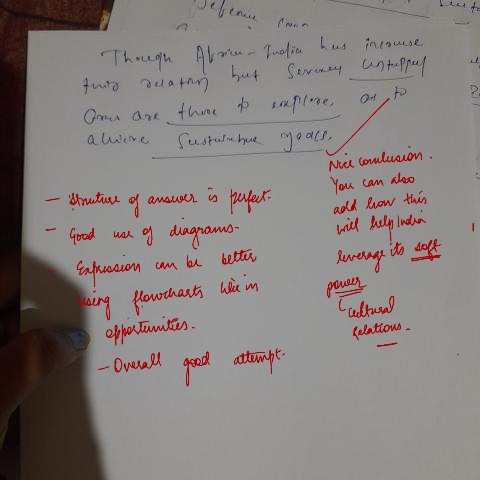 Defence
Though Africa-India has increase
their relation but several untapped
ones are there to explore. as to
achieve sustainable goals.
Nice conclusion.
You can also
add how this
will help India
leverage its soft
power
cultural
relations.
- Structure of answer is perfect.
- Good use of diagrams.
- Expression can be better
using flowcharts like in
opportunities.
- Overall good attempt.